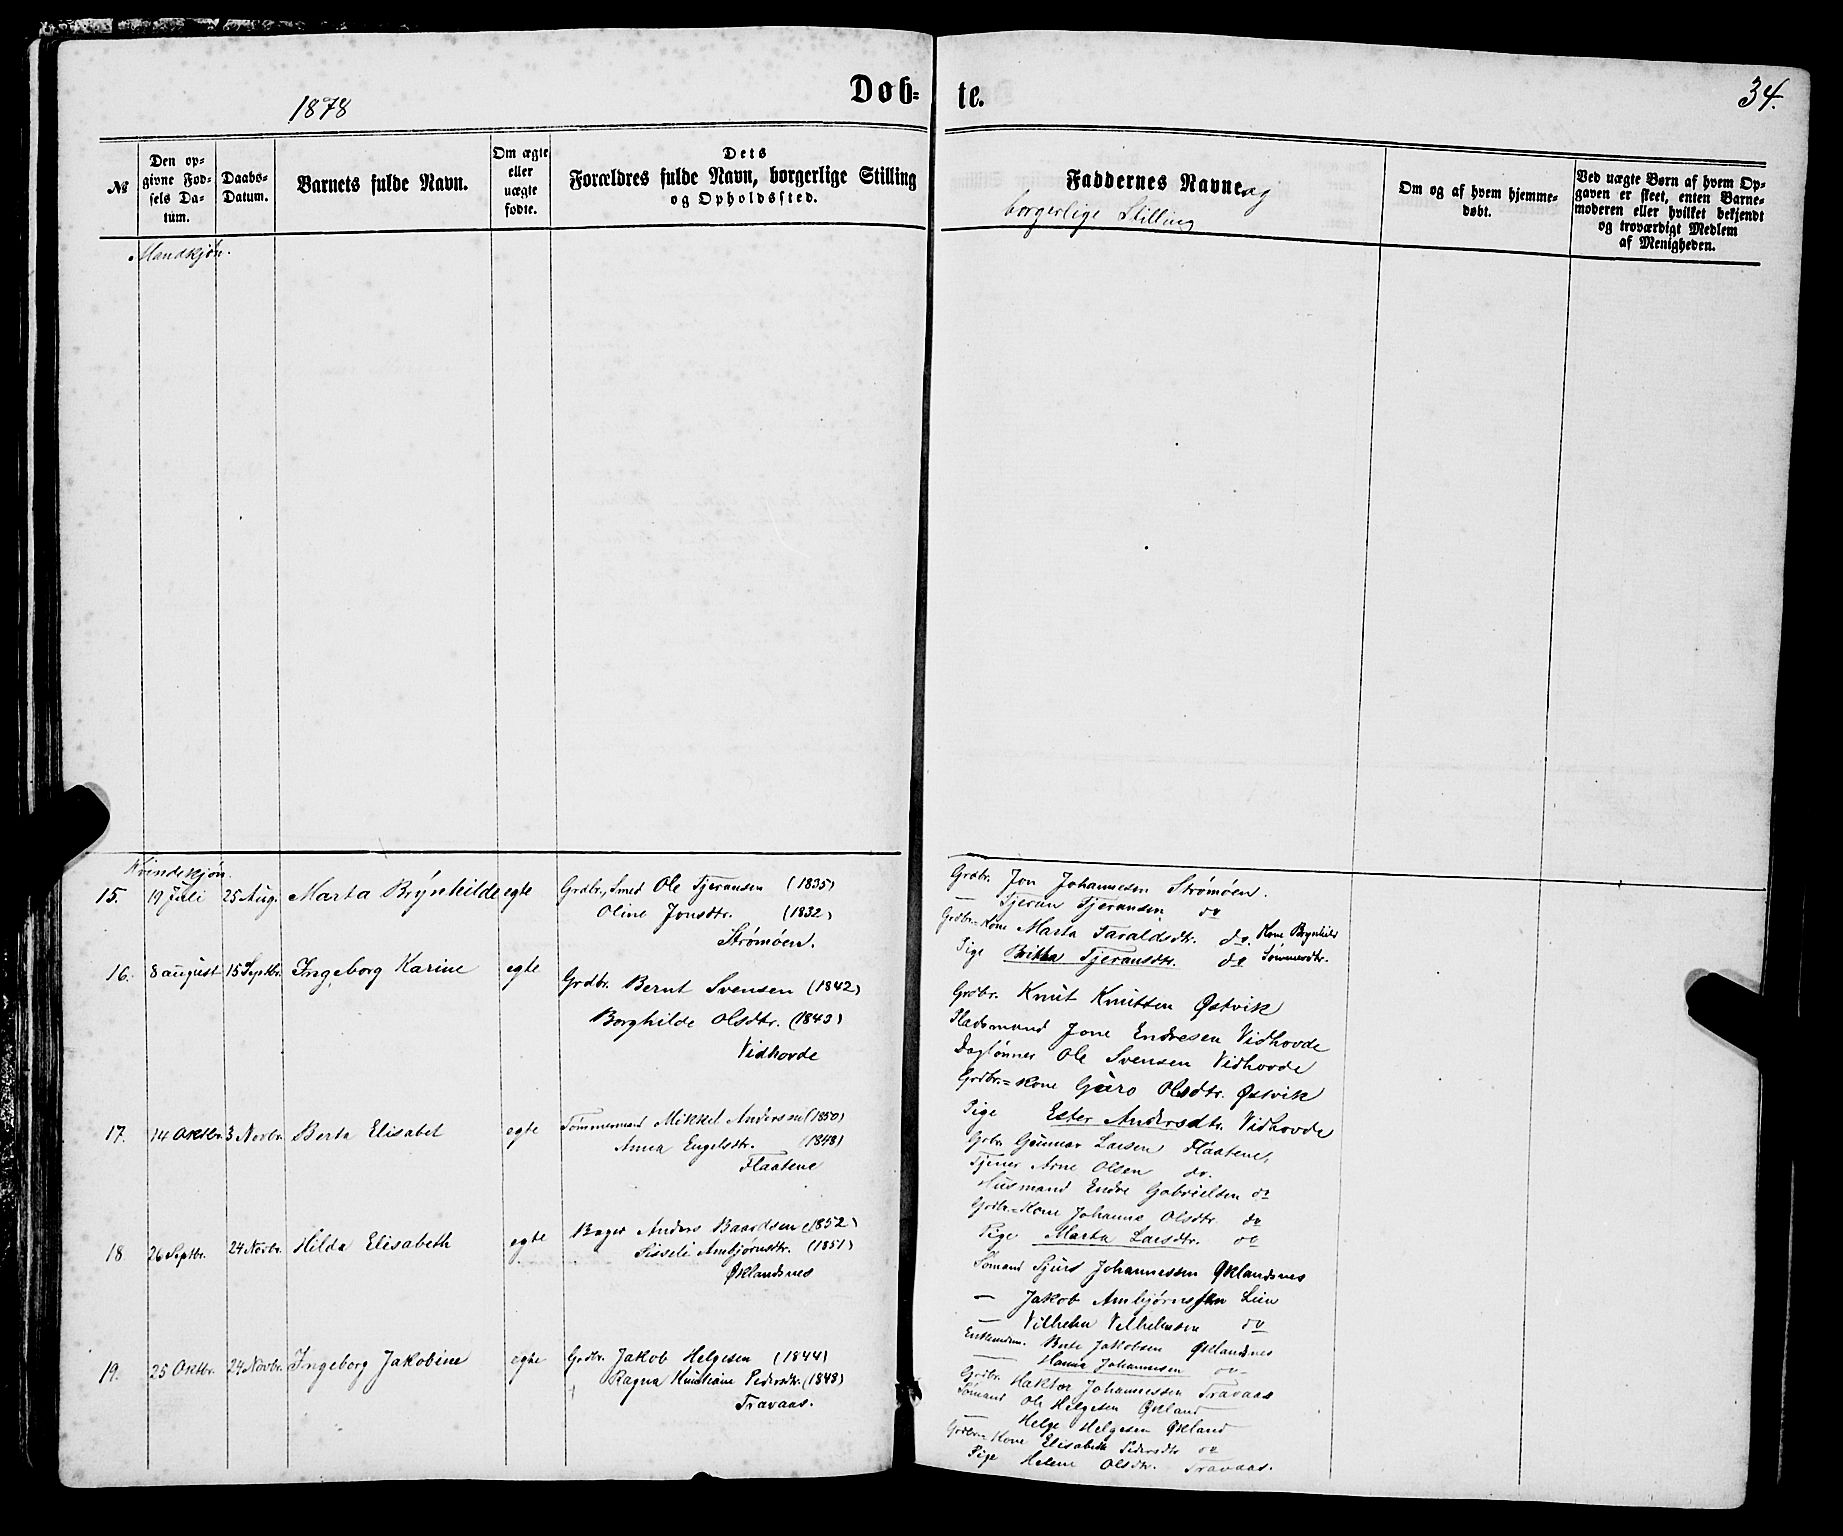 1878
Døb-
te.
34.
№
Den op-
givne Fød-
sels Da-
tum.
Daabs-
Datum.
Barnets fulde Navn.
Om ægte
eller
uægte
fødte.
Dets
Forældres fulde Navn, borgerlige Stilling
og Opholdssted.
Faddernes Navne og
borgerlige Stilling
Om og af hvem hjemme-
døbt.
Ved uægte Børn af hvem Op-
gaven er skeet, enten Barne-
moderen eller hvilket bekjendt
og troværdigt Medlem
af Menigheden.
Mandkjøn.
Kvindekjøn.
15. 19 Juli 25 Aug. Marta Brynhilde egte Grdbr., Smed Ole Tjeransen (1835)
Oline Jonsdtr. (1832)
Strømøen.
Grdbr. Jon Johannesen Strømøen.
— Tjeran Tjeransen do
Grdbr=Kone Marta Taraldsdtr. do. Kone Brynhild
Pige Brita Tjeransdtr. do Sømmerdtr.
16. 8 august 15 Septbr. Ingeborg Karine egte Grdbr. Bernt Svensen (1842)
Borghilde Olsdtr. (1843)
Vidhovde
Grdbr. Knut Knutsen Østvik
Pladsmand Jone Endresen Vidhovde
Daglønner Ole Svensen Vidhovde
Grdbr.=Kone Guro Olsdtr. Østvik
Pige Ester Andersdtr. Vidhovde
17. 14 Oktbr. 3 Novbr. Berta Elisabet egte Tømmermand Mikkel Anderssen (1850)
Anna Engelsdtr. (1848)
Flaatene
Grbr. Gunnar Larsen Flaatene,
Tjener Arne Olsen do.
Husmand Endre Gabrielsen do
Grdbr=Kone Johanne Olsdtr. do
Pige Marta Larsdtr. do
18 26 Septbr. 24 Novbr. Hilda Elisabeth egte Bager Anders Baardsen (1852)
Sissele Ambjørnsdtr. (1851)
Øklandsnes
Sømand Sjurs Johannessen Øklandsnes
— Jakob Ambjørnssen Lien
— Vilhelm Vilhelmsen do
Enkemdm. Berte Jakobsen Øklandsnes
— Hanna Johannesen do
19. 25 Oktbr. 24 Novbr. Ingeborg Jakobine egte Grdbr. Jakob Helgesen (1844)
Ragna Kristiane Pedersdtr. (1848)
Travaas.
Grdbr. Haktor Johannessen Travaas
Sømand Ole Helgesen Økland
— Helge Helgesen Økland
Grdbr=Kone Elisabeth Pedersdtr do
Pige Helene Olsdtr. Travaas.